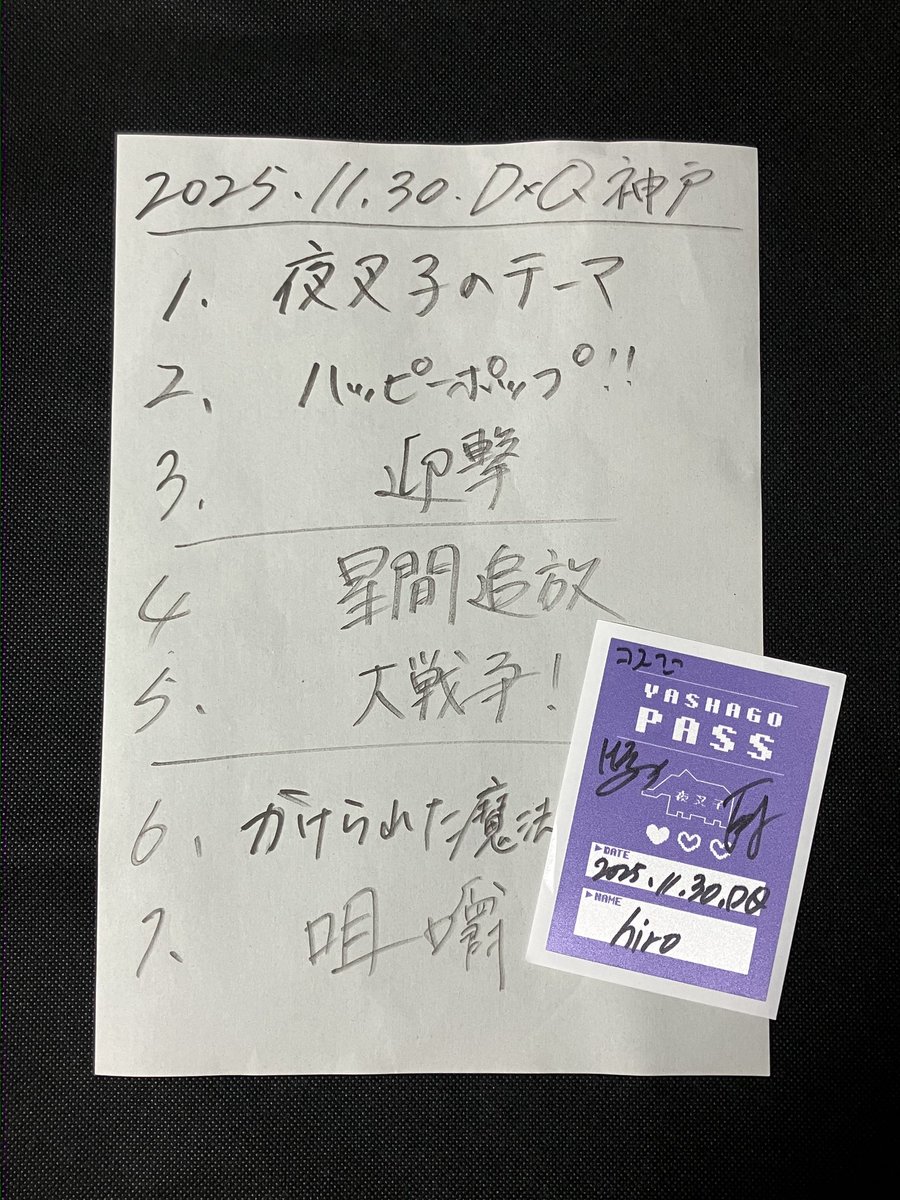 2025.11.30. DxQ 神戸
1. 夜叉子のテーマ
2、 ハッピーポップ!!
3. 迎撃
4 星間追放
5. 大戦争!
6、かけられた魔法
7、 咀嚼
YASHAGO
PASS
夜叉子
▶DATE
2025.11.30.DQ
▶NAME
hiro